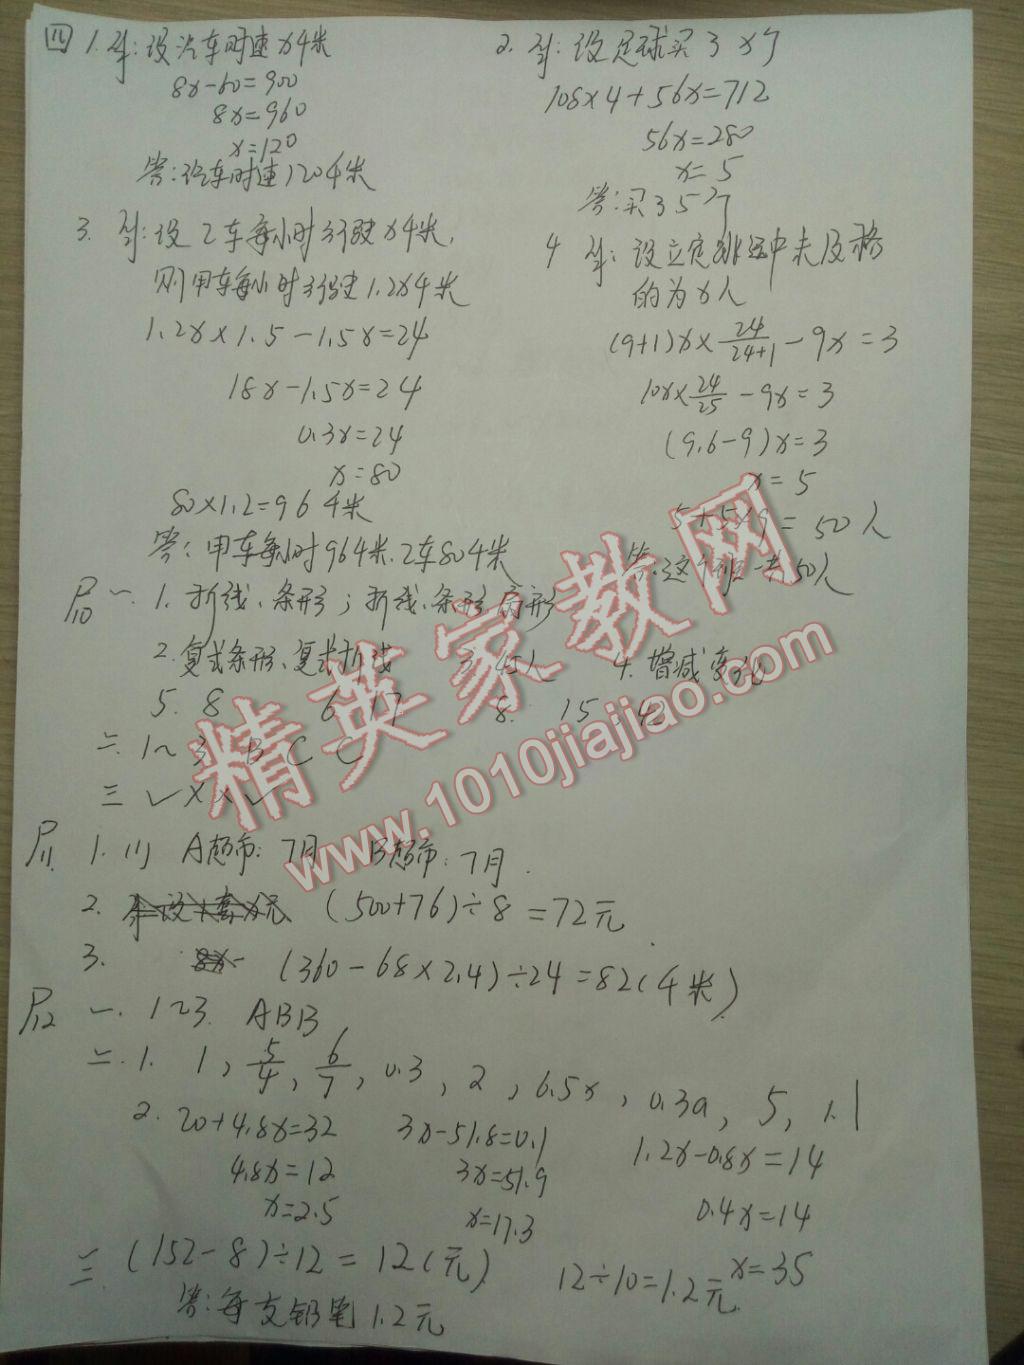 四 1. 解:设汽车时速x千米
8x-60=900
8x=960
x=120
答:汽车时速120千米
2. 解:设足球买了x个
108×4+56x=712
56x=280
x=5
答:买了5个
3. 解:设乙车每小时行驶x千米,
则甲车每小时行驶1.2x千米
1.2x×1.5-1.5x=24
18x-1.5x=24
0.3x=24
x=80
80×1.2=96千米
答:甲车每小时96千米.乙车80千米
4 解:设立定跳远中未及格
的为x人
(9+1)x×24/(24+1)-9x=3
10x×24/25-9x=3
(9.6-9)x=3
x=5
5+5×9=50人
答.这个班一共50人
P10 一. 1. 折线、条形;折线、条形 扇形
2. 复式条形、复式折线 4. 增减变化
5. 8 8. 15
二. 1~3 B C C
三 ✓ × × ✓
P11 1. (1) A超市:7月 B超市:7月.
2. (500+76)÷8=72元
3. (360-68×2.4)÷24=82(千米)
P12 一. 1~3. ABB
二. 1. 1, 5/4, 6/7, 0.3, 2, 6.5x, 0.3a, 5, 1.1
2. 20+4.8x=32 3x-51.8=0.1 1.2x-0.8x=14
4.8x=12 3x=51.9 0.4x=14
x=2.5 x=17.3 x=35
三 (152-8)÷12=12(元) 12÷10=1.2元
答:每支铅笔1.2元
精英家教网
www.1010jiajiao.com